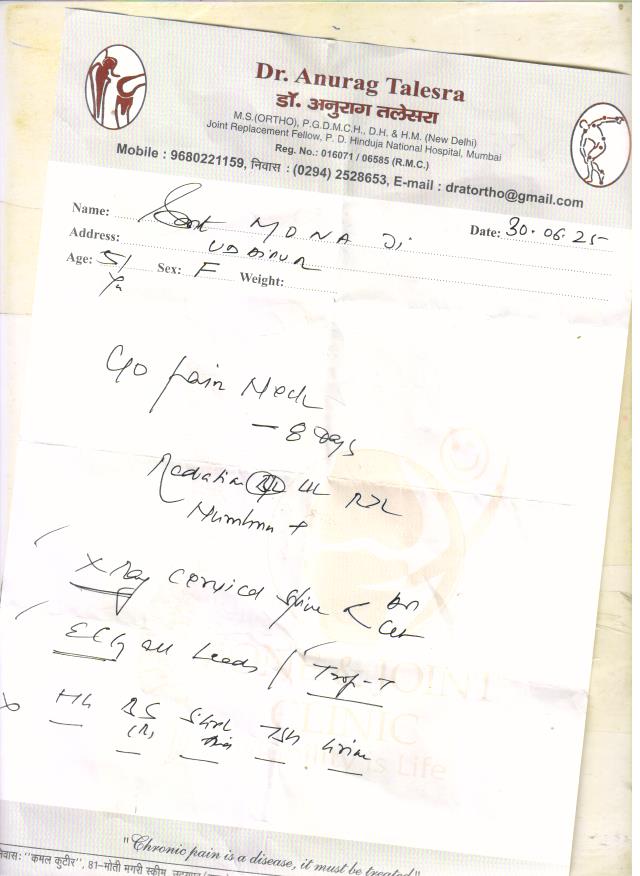 Dr. Anurag Talesra
डॉ. अनुराग तलेसरा
M.S.(ORTHO), P.G.D.M.C.H., D.H. & H.M. (New Delhi)
Joint Replacement Fellow, P. D. Hinduja National Hospital, Mumbai
Reg. No.: 016071 / 06585 (R.M.C.)
Mobile : 9680221159, निवास : (0294) 2528653, E-mail : dratortho@gmail.com
Name: MONA Ji Date: 30.06.25
Address: UDAIPUR
Age: 51 Sex: F Weight:
Yr
C/O Pain Neck
- 8 days
Radiation UL R>L
Numbness +
X Ray Cervical Spine < AP
Lat
ECG all Leads / Trop-T
Hb BS S. TSH Urine
(R)
JOINT
CLINIC
is Life
"Chronic pain is a disease, it must be treated"
निवास: "कमल कुटीर", 81-मोती मगरी स्कीम,